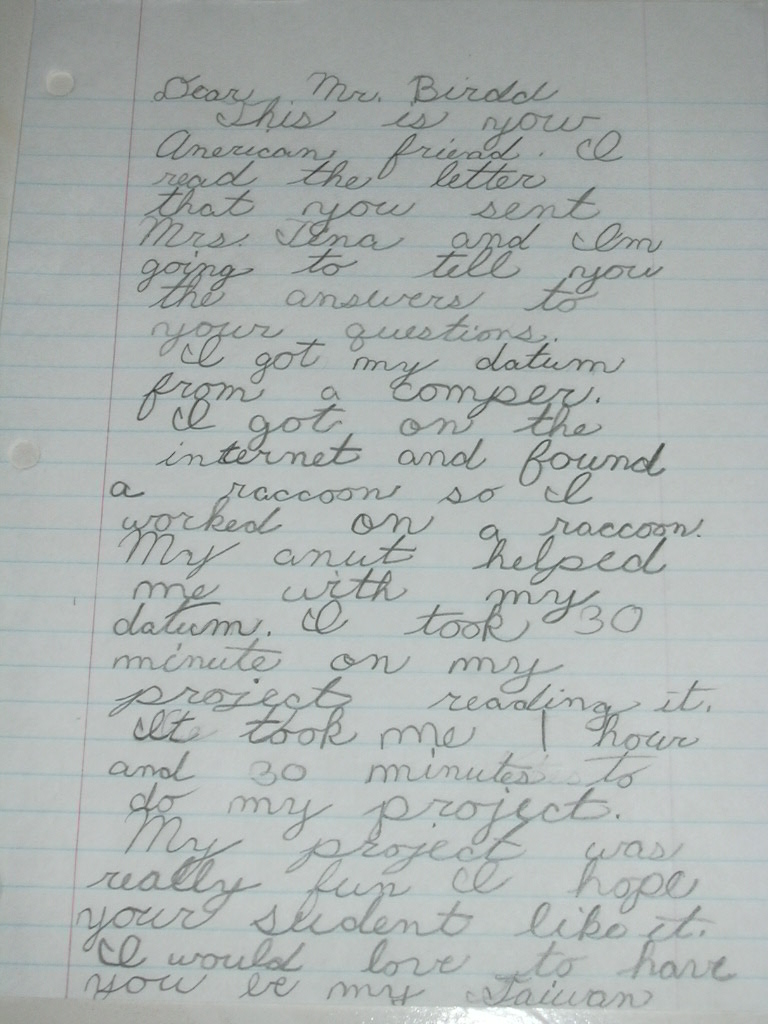 Dear Mr. Birdd
This is your
Anerican friend. I
read the letter
that you sent
Mrs. Tina and I'm
going to tell you
the answers to
your questions.
I got my datum
from a comper.
I got on the
internet and found
a raccoon so I
worked on a raccoon.
My anut helped
me with my
datum. I took 30
minute on my
project reading it.
It took me 1 hour
and 30 minutes to
do my project.
My project was
really fun I hope
your student like it.
I would love to have
you be my Taiwan